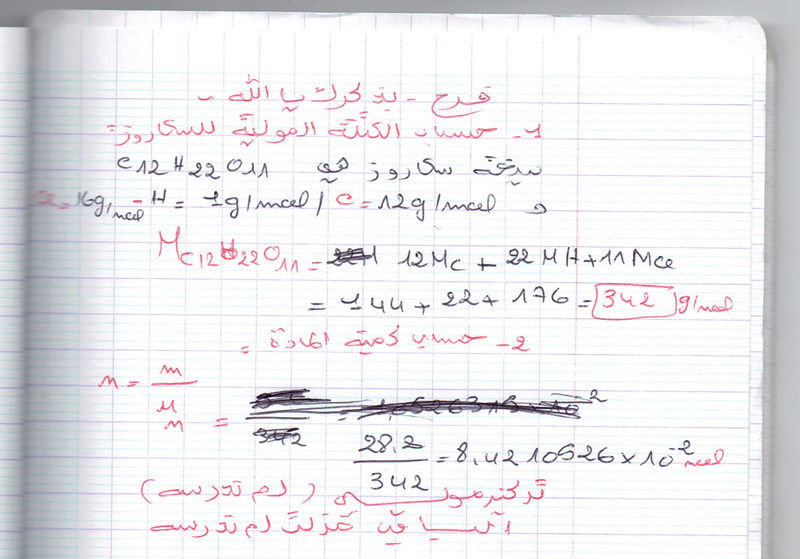 فرح - بتحرك يا الله -
1- حساب الكتلة المولية للسكاروز:
صيغة سكاروز هي C12H22O11
و C = 12g/mol / H = 1g/mol - O = 16g/mol
MC12H22O11 = 12Mc + 22MH + 11Mo
= 144 + 22 + 176 = 342 g/mol
2- حساب كمية المادة =
n = m/M
n = 28,2/342 = 8,4210526 x 10-2 mol
تركيز مولي (لم ندرسه)
لم ندرسه